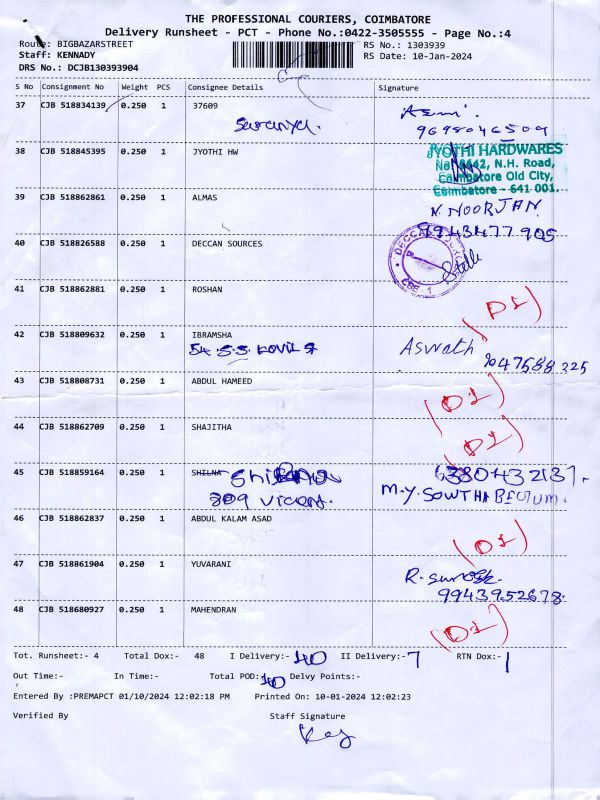 THE PROFESSIONAL COURIERS, COIMBATORE
Delivery Runsheet - PCT - Phone No.:0422-3505555 - Page No.:4
Route: BIGBAZARSTREET
RS No.: 1303939
Staff: KENNADY
RS Date: 10-Jan-2024
DRS No.: DCJB130393904
S No Consignment No Weight PCS Consignee Details Signature
37 CJB 518834139 0.250 1 37609
Saranya.
9698046509
38 CJB 518845395 0.250 1 JYOTHI HW
JYOTHI HARDWARES
N.H. Road,
Coimbatore Old City,
Coimbatore - 641 001.
39 CJB 518862861 0.250 1 ALMAS
N. NOORJAN
8943477905
40 CJB 518826588 0.250 1 DECCAN SOURCES
DECCAN
CBE - 1
41 CJB 518862881 0.250 1 ROSHAN
(D1)
42 CJB 518809632 0.250 1 IBRAMSHA
54. S.S. KOVIL St
Aswath
9047588325
43 CJB 518808731 0.250 1 ABDUL HAMEED
(D1)
44 CJB 518862709 0.250 1 SHAJITHA
(D1)
45 CJB 518859164 0.250 1 SHILNA
6380432137.
809 Vicent.
M.Y. SOWTHA BEGUM.
46 CJB 518862837 0.250 1 ABDUL KALAM ASAD
(D1)
47 CJB 518861904 0.250 1 YUVARANI
R. Suresh.
9943952678.
48 CJB 518680927 0.250 1 MAHENDRAN
(D1)
Tot. Runsheet:- 4 Total Dox:- 48 I Delivery:- 40 II Delivery:- 7 RTN Dox:- 1
Out Time:- In Time:- Total POD:- 40 Delvy Points:-
Entered By :PREMAPCT 01/10/2024 12:02:18 PM Printed On: 10-01-2024 12:02:23
Verified By Staff Signature